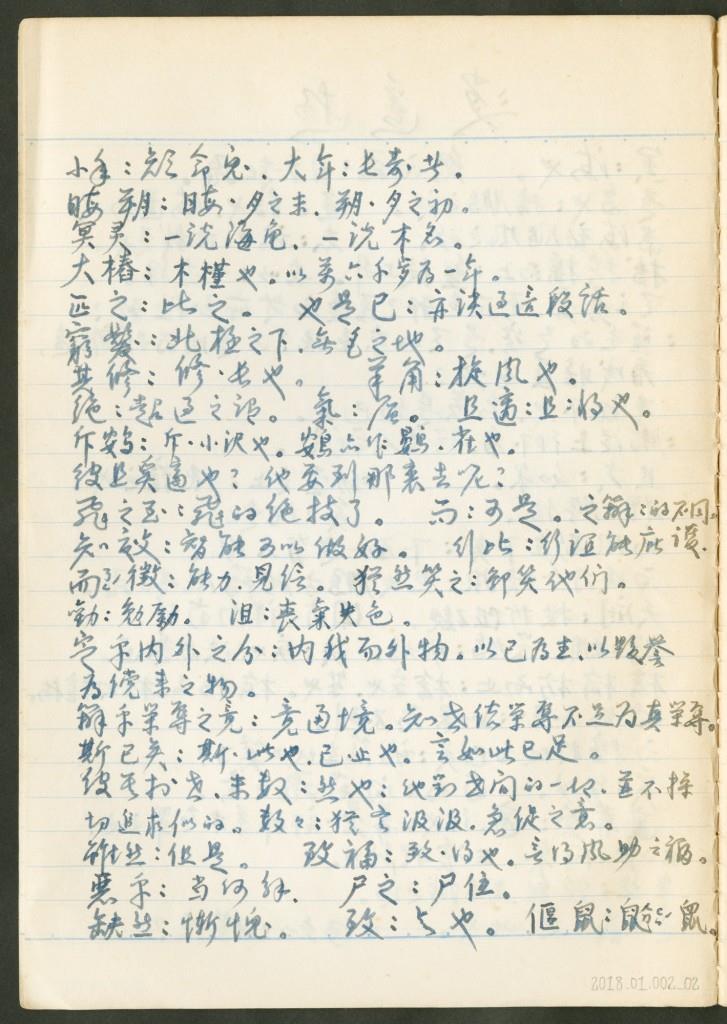 小年：短命兒．大年：长寿者。
晦朔：晦·夕之末．朔·夕之初。
冥灵：一说海龟．一说木名。
大椿：木槿也。以萬六千歲為一年。
匹之：比之。　也是已：亦談過這段話。
窮髮：北極之下．無毛之地。
其修：修·长也。　羊角：旋風也。
絕：超過之謂。　氣：层。　且適：且：将也。
斥鴳：斥·小沢也。鴳亦作鷃．雀也。
彼且奚適也？他要到那裏去呢？
飛之至：飛的絕技了。　而：可是。之辯：的不同。
知效：智能可以做好。　行比：行誼能庇護．
而徵：能力．見信。　猶然笑之：卻笑他们。
勸：勉勵。　沮：喪氣失色。
定乎内外之分：内我而外物。以己為主．以毀譽
為儻来之物。
辯乎榮辱之竟：竟通境。知世俗榮辱不足为真榮辱。
斯已矣：斯·此也．已·止也。言如此已足。
彼其於世．未数：然也：他對世间的一切．並不採
切進求似的。数々：猶言汲汲．急促之意。
雖然：但是。　致福：致·得也。言得風助之福。
惡乎：当何解．　尸之：尸位。
缺然：慚愧。　致：与也。　偃鼠：鼠
2018.01.002_02